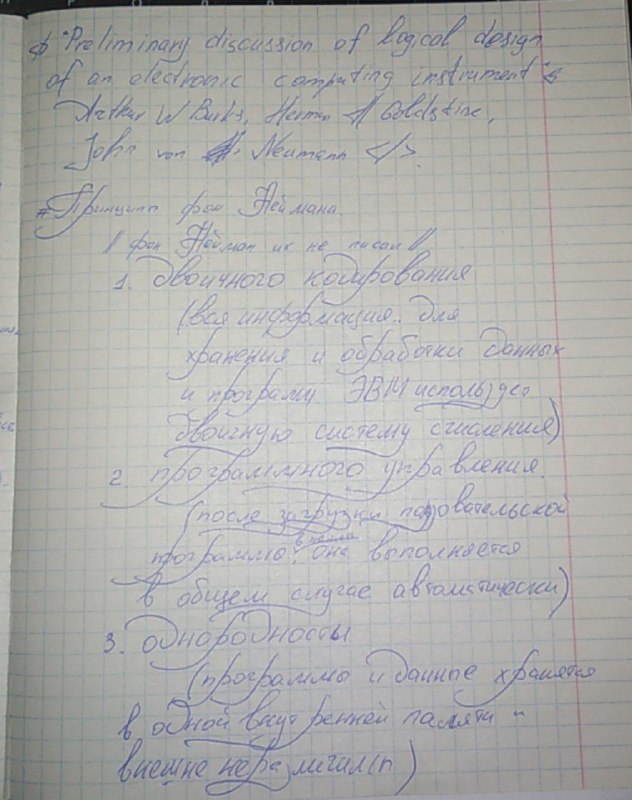 "Preliminary discussion of logical design
of an electronic computing instrument"
Arthur W Burks, Herman H Goldstine,
John von Neumann </>.
# Принципы фон Неймана.
// фон Нейман их не писал //
1. двоичного кодирования
(вся информация.. для
хранения и обработки данных
и программ ЭВМ использует
двоичную систему счисления)
2. программного управления.
(после загрузки
в память
программы, она выполняется
в общем случае автоматически)
3. однородности
(программа и данные хранятся
в одной внутренней памяти и
внешне неразличимы)